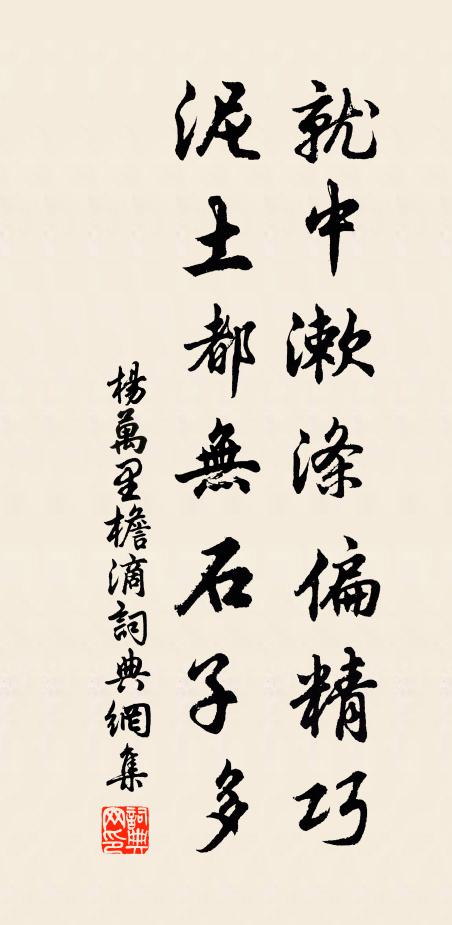 就中漱滌偏精巧
泥土都無石子多
楊萬里檐滴詞典網集
詞典网印